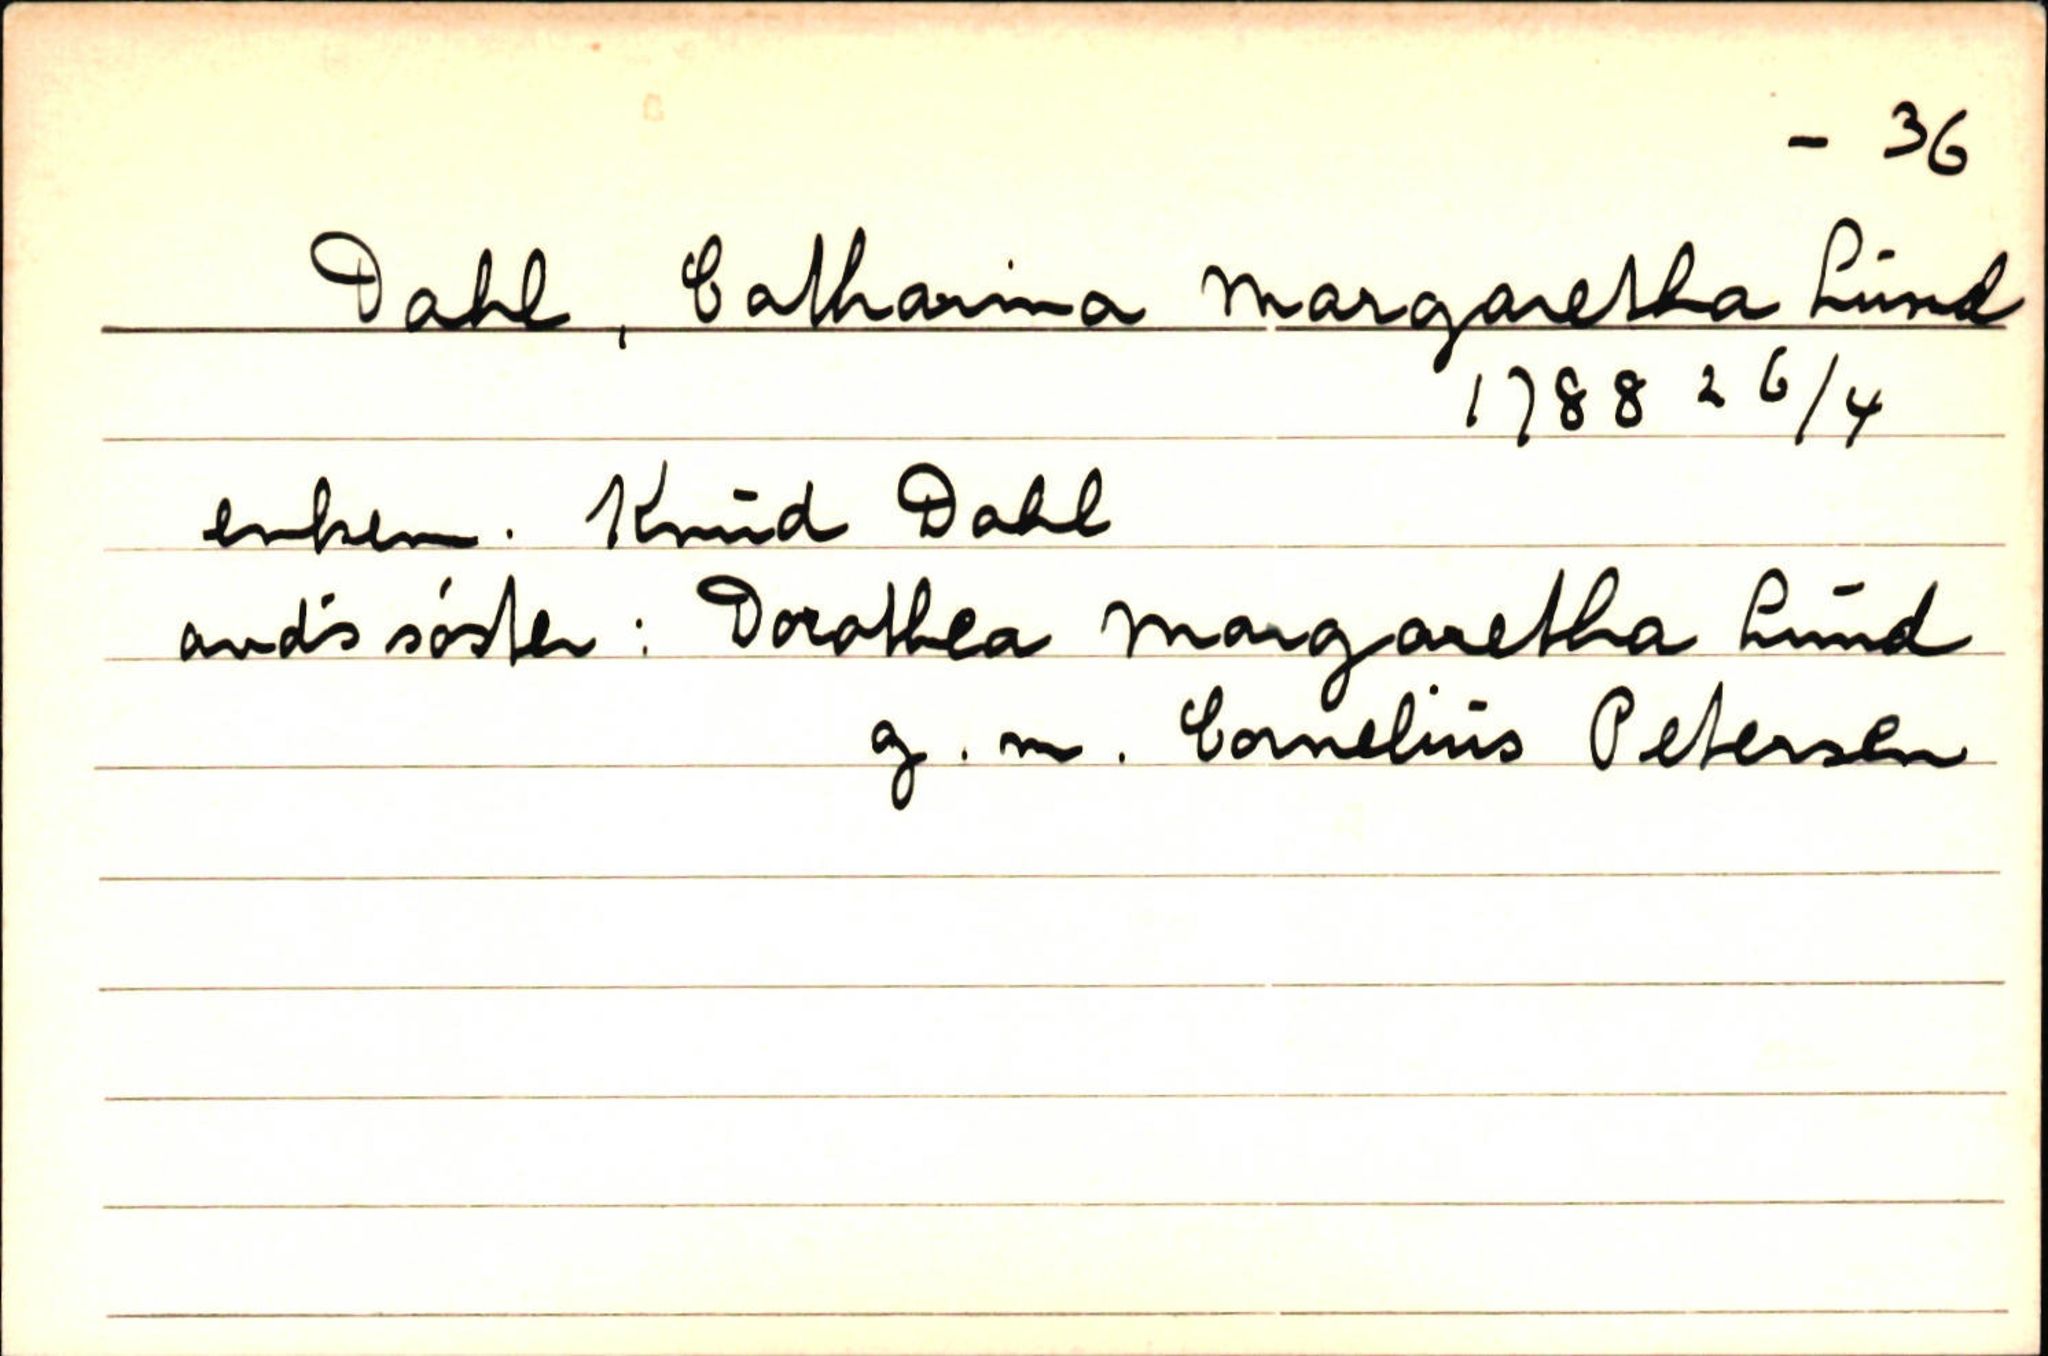 - 36
Dahl, Catharina Margaretha Lund
1788 26/4
enkem. Knud Dahl
avd's søster: Dorothea Margaretha Lund
g.m. Cornelius Petersen